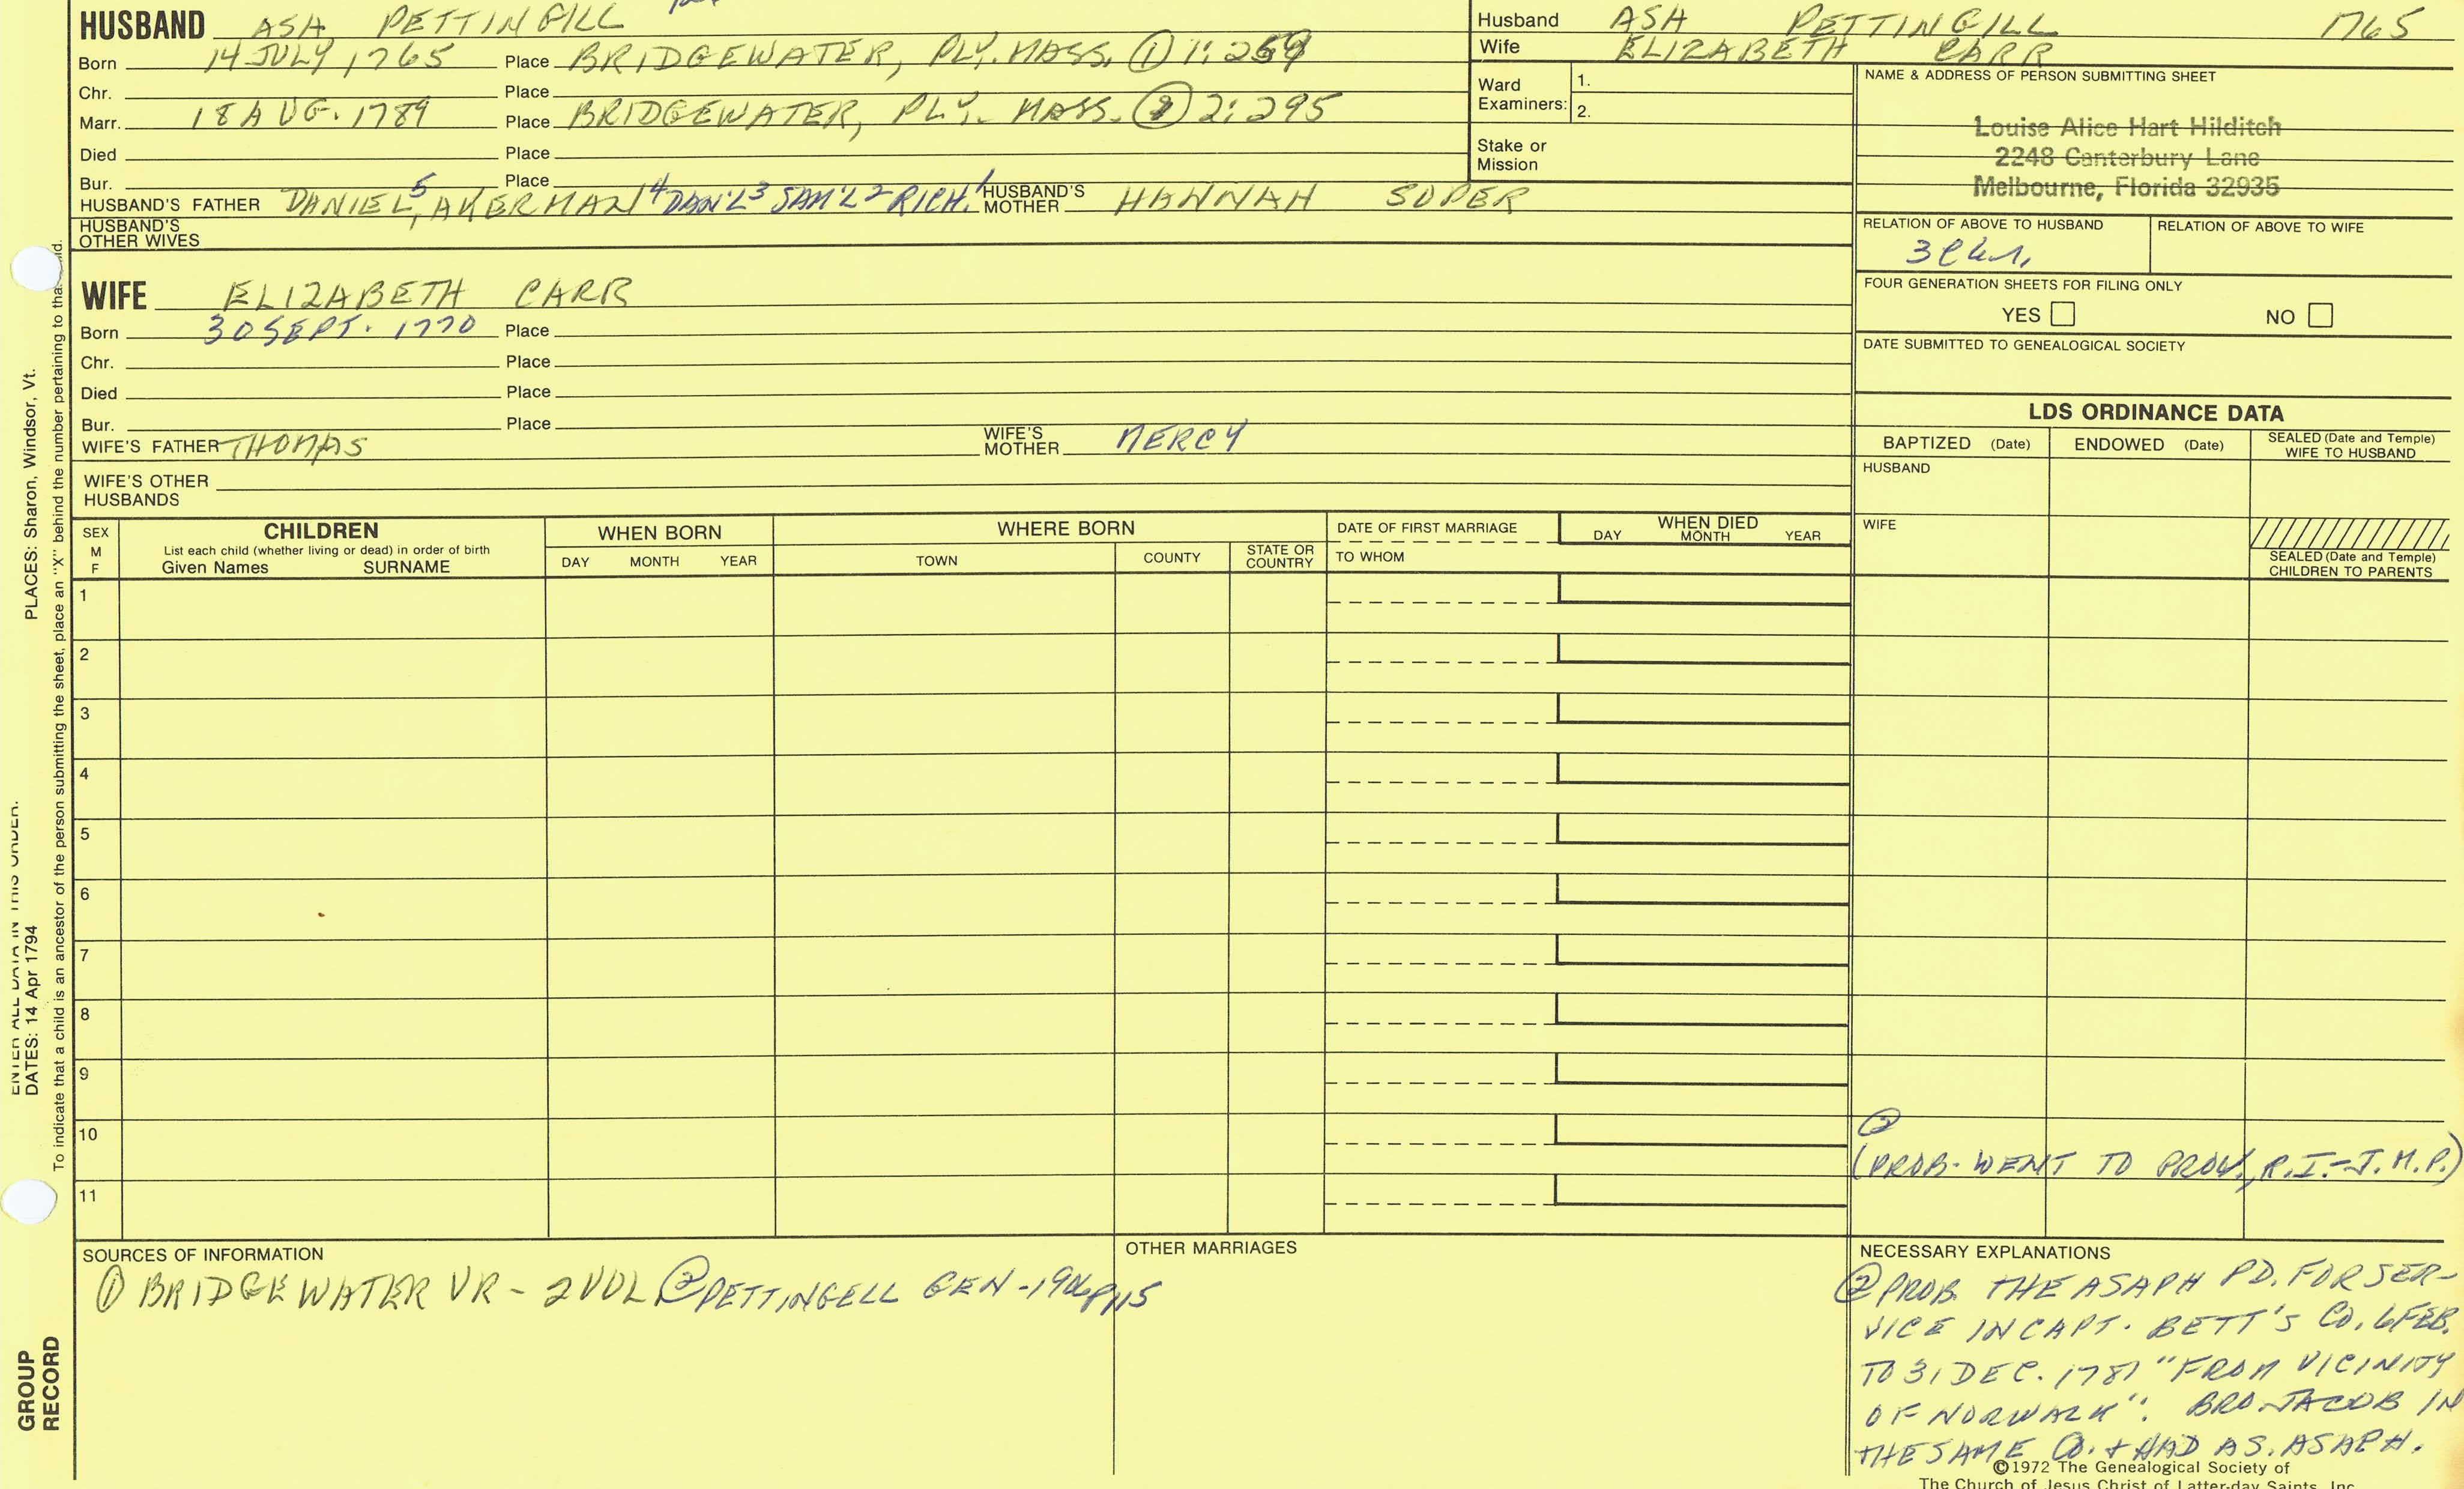 HUSBAND ASA PETTINGILL
Born 14 JULY 1765 Place BRIDGEWATER, PLY. MASS. ① 1:259
Chr. Place
Marr. 18 AUG. 1789 Place BRIDGEWATER, PLY. MASS. ② 2:295
Died Place
Bur. Place
HUSBAND'S FATHER DANIEL5, AKERMAN4 DAN'L3 SAM'L2 RICH.1 HUSBAND'S MOTHER HANNAH SOPER
HUSBAND'S OTHER WIVES
Husband ASA PETTINGILL 1765
Wife ELIZABETH CARR
Ward Examiners: 1.
2.
Stake or Mission
NAME & ADDRESS OF PERSON SUBMITTING SHEET
Louise Alice Hart Hilditch
2248 Canterbury Lane
Melbourne, Florida 32935
RELATION OF ABOVE TO HUSBAND RELATION OF ABOVE TO WIFE
FOUR GENERATION SHEETS FOR FILING ONLY
YES NO
DATE SUBMITTED TO GENEALOGICAL SOCIETY
WIFE ELIZABETH CARR
Born 30 SEPT. 1770 Place
Chr. Place
Died Place
Bur. Place
WIFE'S FATHER THOMAS WIFE'S MOTHER MERCY
WIFE'S OTHER HUSBANDS
LDS ORDINANCE DATA
BAPTIZED (Date) ENDOWED (Date) SEALED (Date and Temple) WIFE TO HUSBAND
HUSBAND
WIFE
SEALED (Date and Temple) CHILDREN TO PARENTS
SEX M F
CHILDREN
List each child (whether living or dead) in order of birth
Given Names SURNAME
WHEN BORN
DAY MONTH YEAR
WHERE BORN
TOWN COUNTY STATE OR COUNTRY
DATE OF FIRST MARRIAGE
TO WHOM
WHEN DIED
DAY MONTH YEAR
1
2
3
4
5
6
7
8
9
10
11
②
(PROB. WENT TO PROV., R.I.-J.M.P.)
SOURCES OF INFORMATION
① BRIDGEWATER VR - 2 VOL ② PETTINGELL GEN - 1906 P115
OTHER MARRIAGES
NECESSARY EXPLANATIONS
② PROB. THE ASAPH PD. FOR SER-
VICE IN CAPT. BETT'S CO. 6 FEB.
TO 31 DEC. 1781 "FROM VICINITY
OF NORWALK". BRO. JACOB IN
THE SAME CO. + HAD AS. ASAPH.
©1972 The Genealogical Society of
The Church of Jesus Christ of Latter-day Saints, Inc.
ENTER ALL DATA IN THIS ORDER.
DATES: 14 Apr 1794 PLACES: Sharon, Windsor, Vt.
To indicate that a child is an ancestor of the person submitting the sheet, place an "X" behind the number pertaining to that child.
GROUP
RECORD